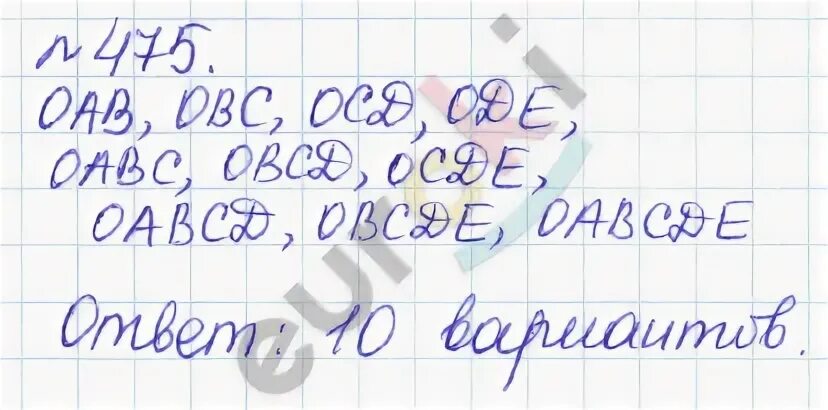 № 475.
OAB, OBC, OCD, ODE,
OABC, OBCD, OCDE,
OABCD, OBCDE, OABCDE
Ответ: 10 вариантов.
euroki